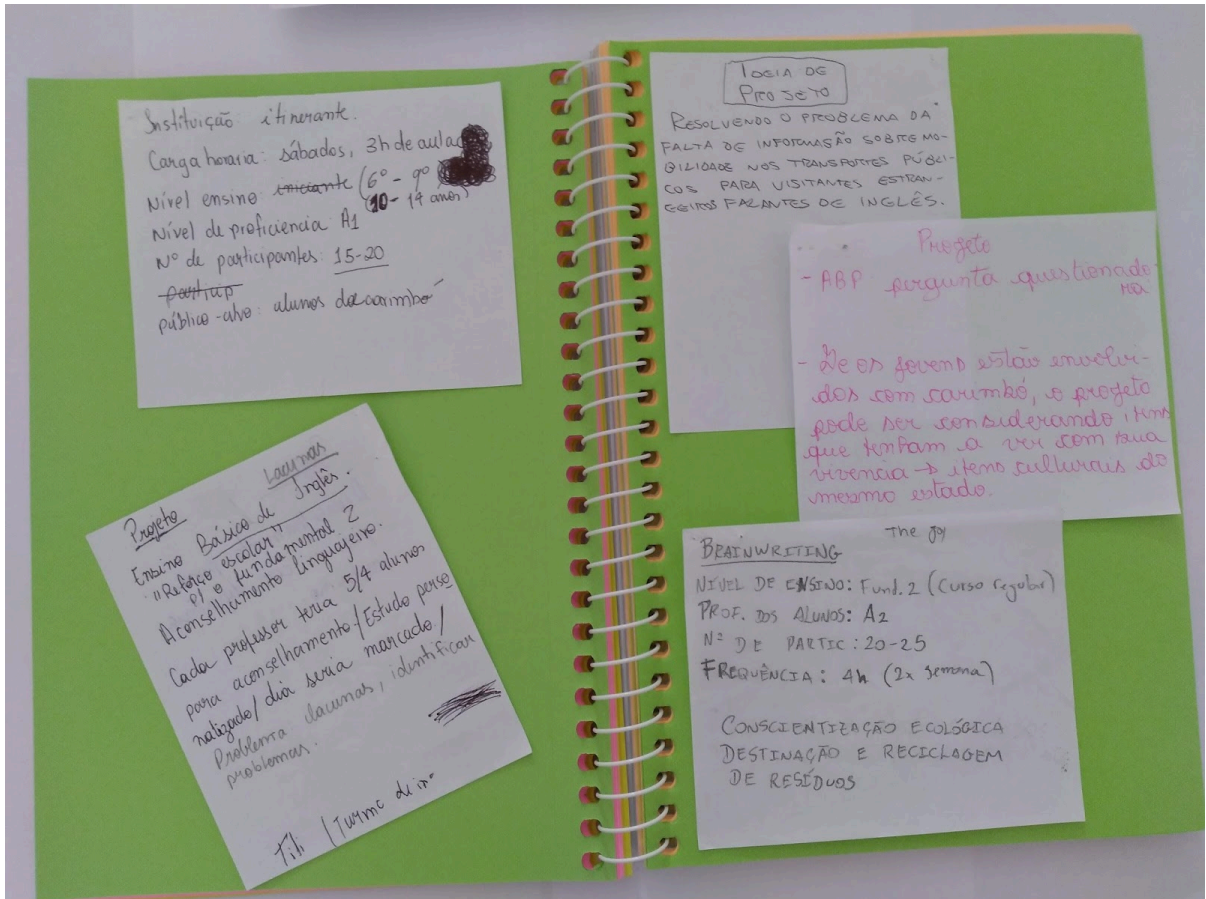 Instituição itinerante.
Carga horaria: sábados, 3h de aula
Nível ensino iniciante (6º - 9º
(10 - 14 anos)
Nível de proficiencia A1
Nº de participantes: 15-20
particip
público-alvo: alunos do carimbó
Lacunas
Projeto
Ensino Básico de Inglês.
"Reforço escolar"
p/ o fundamental 2
Aconselhamento linguajeiro.
Cada professor teria 5/4 alunos
para aconselhamento/Estudo perso
nalizado/dia seria marcado/
Problema lacunas, identificar
problemas.
(Turma
IDEIA DE
PROJETO
RESOLVENDO O PROBLEMA DA
FALTA DE INFORMAÇÃO SOBRE MO-
BILIDADE NOS TRANSPORTES PÚBLI-
COS PARA VISITANTES ESTRAN-
GEIROS FALANTES DE INGLÊS.
Projeto
- ABP pergunta questionado
ra
- Se os jovens estão envolvi-
dos com carimbó, o projeto
pode ser considerando itens
que tenham a ver com sua
vivencia → itens culturais do
mesmo estado.
The joy
BRAINWRITING
NIVEL DE ENSINO: Fund. 2 (Curso regular)
PROF. DOS ALUNOS: A2
Nº DE PARTIC: 20-25
FREQUÊNCIA: 4h (2x semana)
CONSCIENTIZAÇÃO ECOLÓGICA
DESTINAÇÃO E RECICLAGEM
DE RESÍDUOS